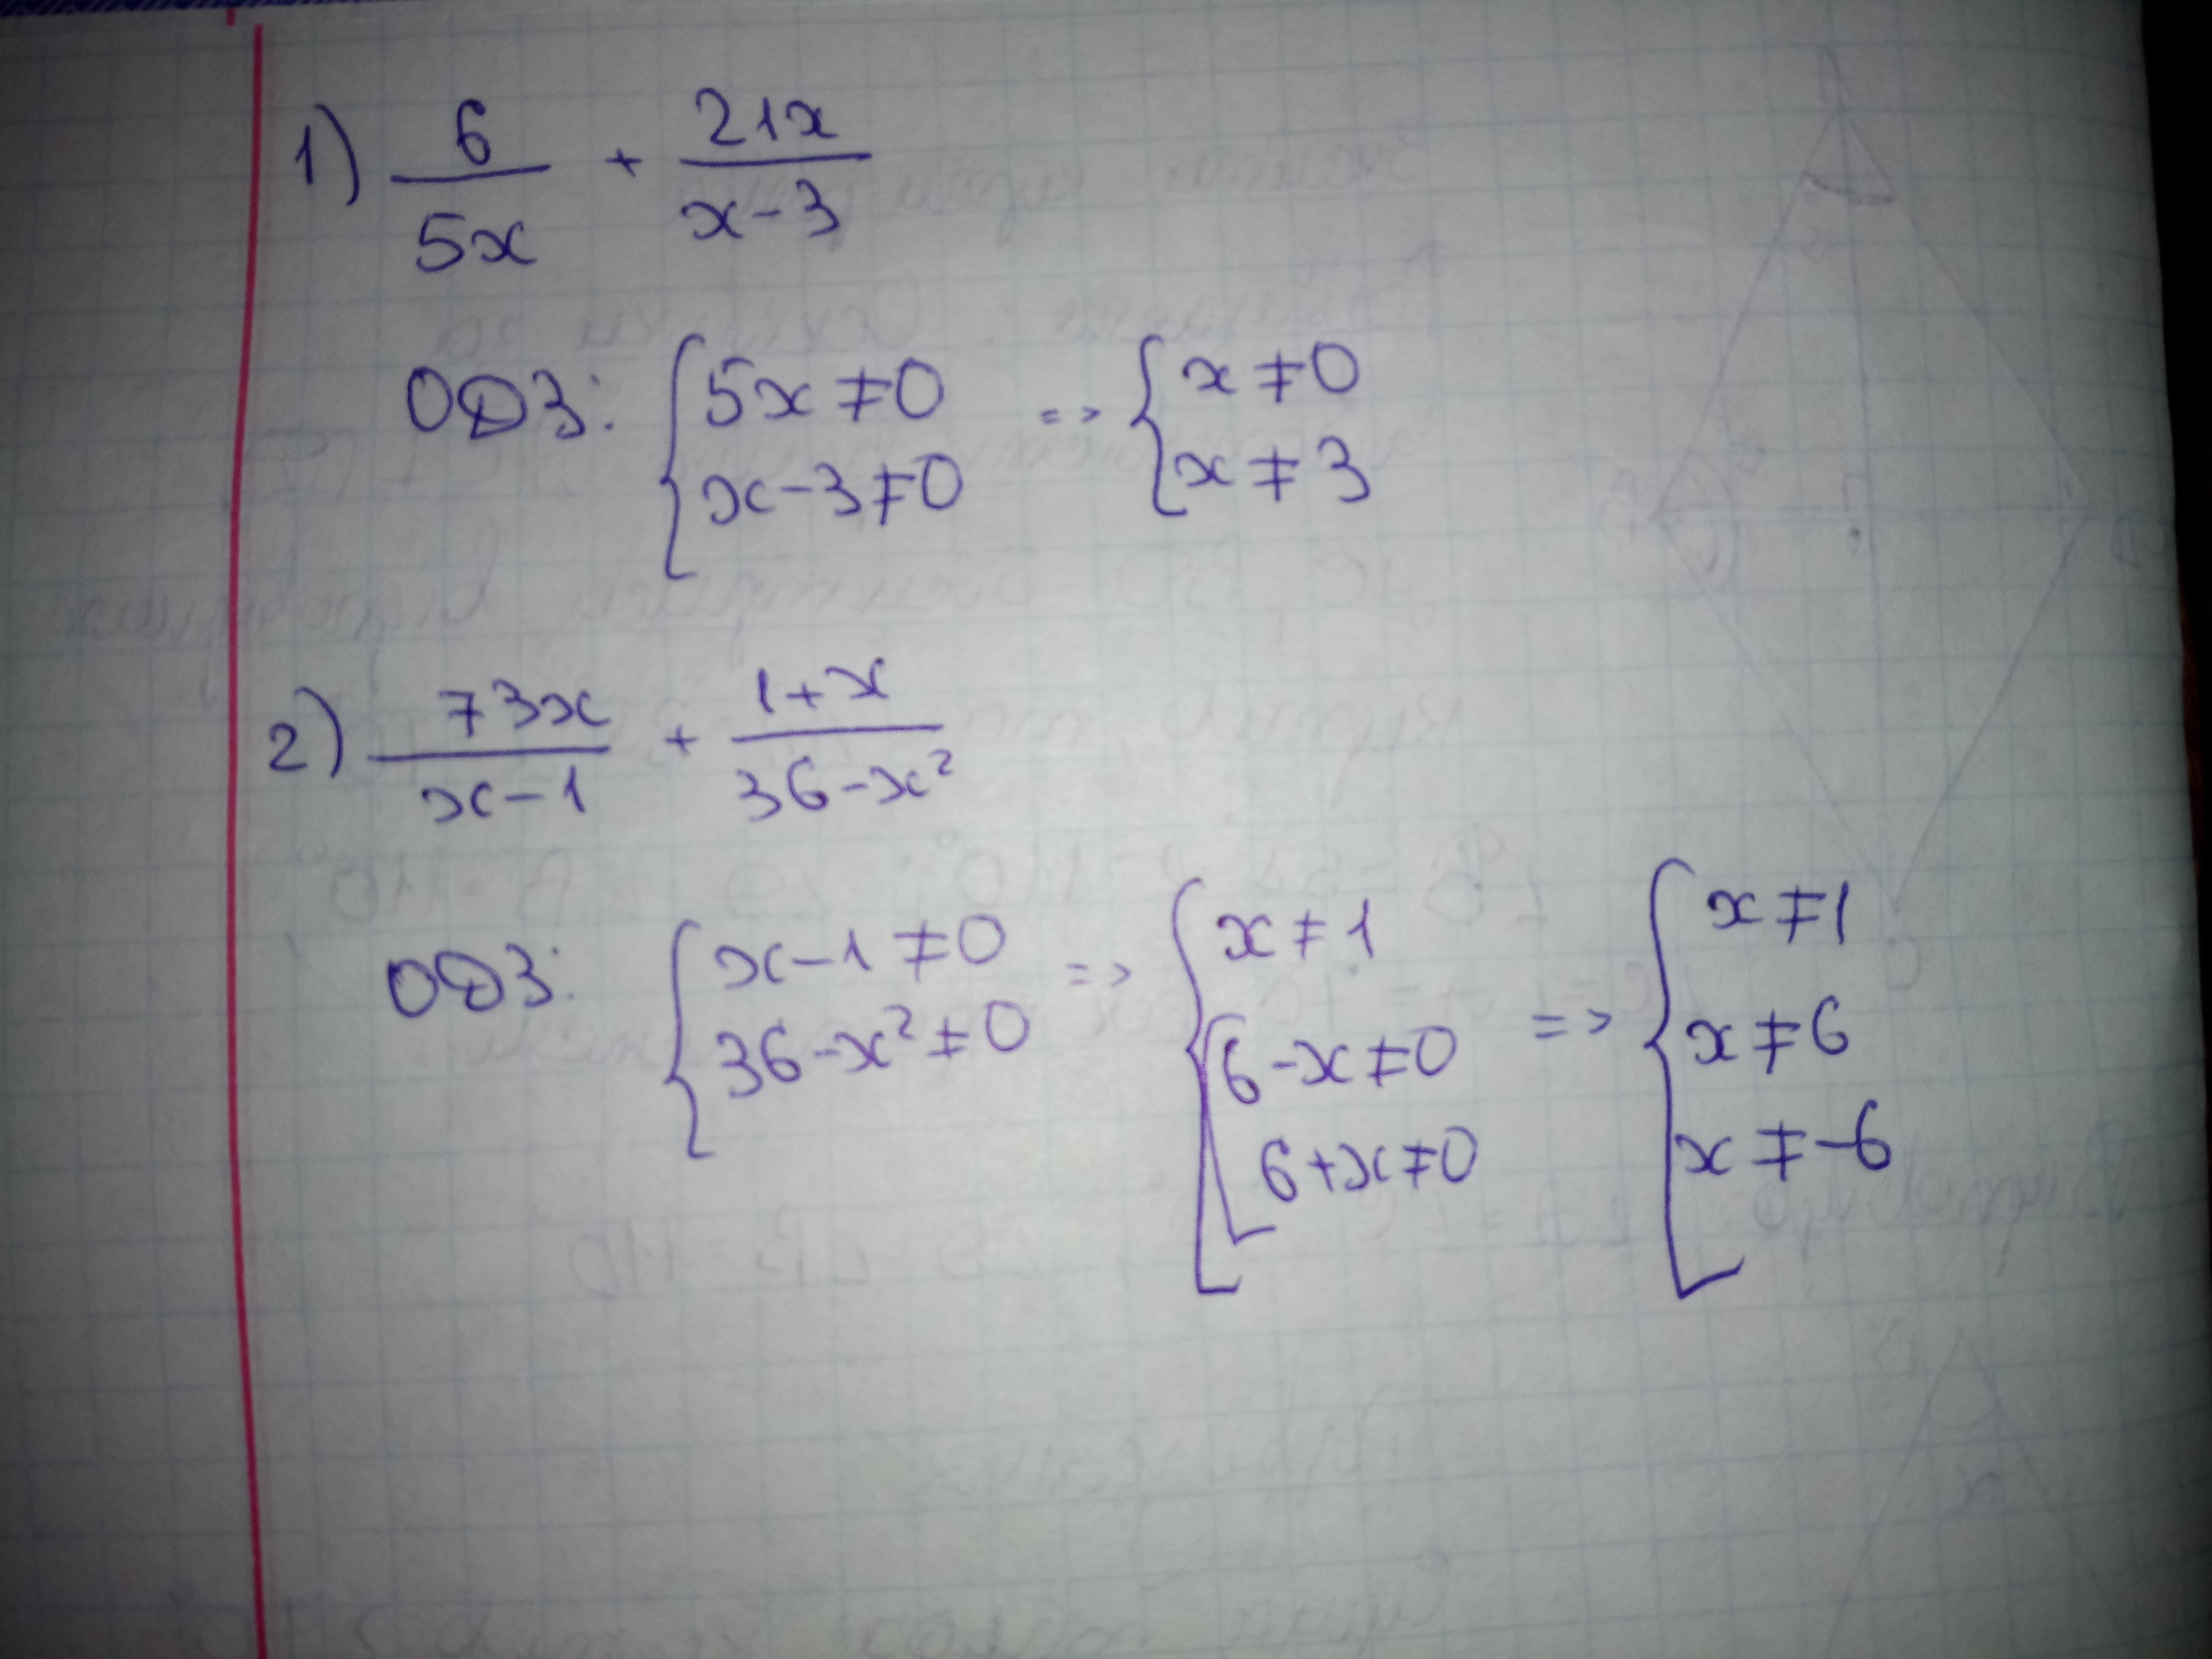 1) 6/5x + 21x/x-3
ОДЗ: { 5x ≠ 0 => { x ≠ 0
x-3 ≠ 0 x ≠ 3
2) 73x/x-1 + 1+x/36-x²
ОДЗ: { x-1 ≠ 0 => { x ≠ 1 => { x ≠ 1
36-x² ≠ 0 6-x ≠ 0 x ≠ 6
6+x ≠ 0 x ≠ -6